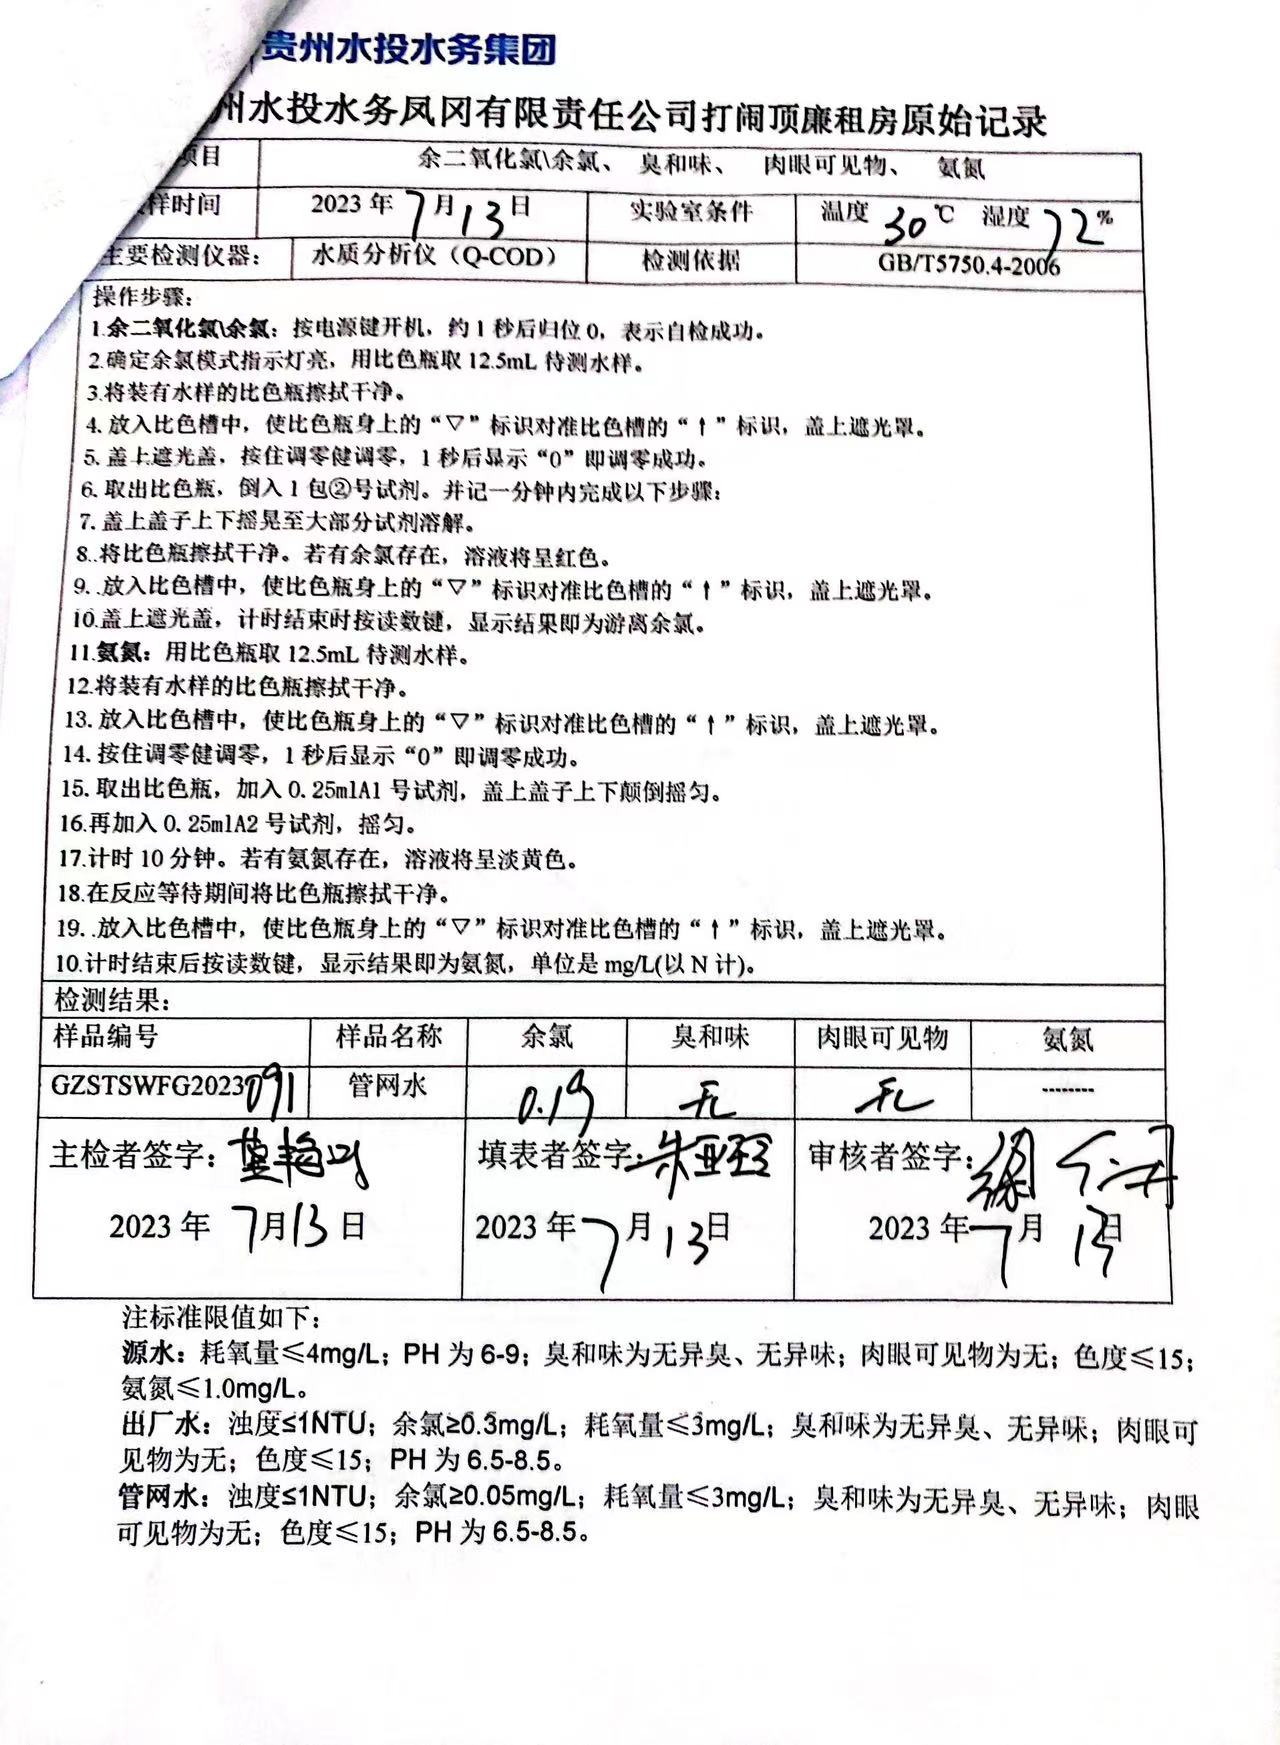 贵州水投水务集团
州水投水务凤冈有限责任公司打闹顶廉租房原始记录
项目 余二氧化氯\余氯、 臭和味、 肉眼可见物、 氨氮
样时间 2023年7月13日 实验室条件 温度30℃ 湿度72%
主要检测仪器： 水质分析仪（Q-COD） 检测依据 GB/T5750.4-2006
操作步骤：
1.余二氧化氯\余氯：按电源键开机，约1秒后归位0，表示自检成功。
2.确定余氯模式指示灯亮，用比色瓶取12.5mL待测水样。
3.将装有水样的比色瓶擦拭干净。
4.放入比色槽中，使比色瓶身上的“▽”标识对准比色槽的“↑”标识，盖上遮光罩。
5.盖上遮光盖，按住调零健调零，1秒后显示“0”即调零成功。
6.取出比色瓶，倒入1包②号试剂。并记一分钟内完成以下步骤：
7.盖上盖子上下摇晃至大部分试剂溶解。
8..将比色瓶擦拭干净。若有余氯存在，溶液将呈红色。
9. .放入比色槽中，使比色瓶身上的“▽”标识对准比色槽的“↑”标识，盖上遮光罩。
10.盖上遮光盖，计时结束时按读数键，显示结果即为游离余氯。
11.氨氮：用比色瓶取12.5mL待测水样。
12.将装有水样的比色瓶擦拭干净。
13.放入比色槽中，使比色瓶身上的“▽”标识对准比色槽的“↑”标识，盖上遮光罩。
14.按住调零健调零，1秒后显示“0”即调零成功。
15.取出比色瓶，加入0.25mlA1号试剂，盖上盖子上下颠倒摇匀。
16.再加入0.25mlA2号试剂，摇匀。
17.计时10分钟。若有氨氮存在，溶液将呈淡黄色。
18.在反应等待期间将比色瓶擦拭干净。
19. .放入比色槽中，使比色瓶身上的“▽”标识对准比色槽的“↑”标识，盖上遮光罩。
10.计时结束后按读数键，显示结果即为氨氮，单位是mg/L(以N计)。
检测结果：
样品编号 样品名称 余氯 臭和味 肉眼可见物 氨氮
GZSTSWFG2023091 管网水 0.19 无 无 --------
主检者签字： 填表者签字： 审核者签字：
2023年7月13日 2023年7月13日 2023年7月13日
注标准限值如下：
源水：耗氧量≤4mg/L；PH为6-9；臭和味为无异臭、无异味；肉眼可见物为无；色度≤15；
氨氮≤1.0mg/L。
出厂水：浊度≤1NTU；余氯≥0.3mg/L；耗氧量≤3mg/L；臭和味为无异臭、无异味；肉眼可
见物为无；色度≤15；PH为6.5-8.5。
管网水：浊度≤1NTU；余氯≥0.05mg/L；耗氧量≤3mg/L；臭和味为无异臭、无异味；肉眼
可见物为无；色度≤15；PH为6.5-8.5。